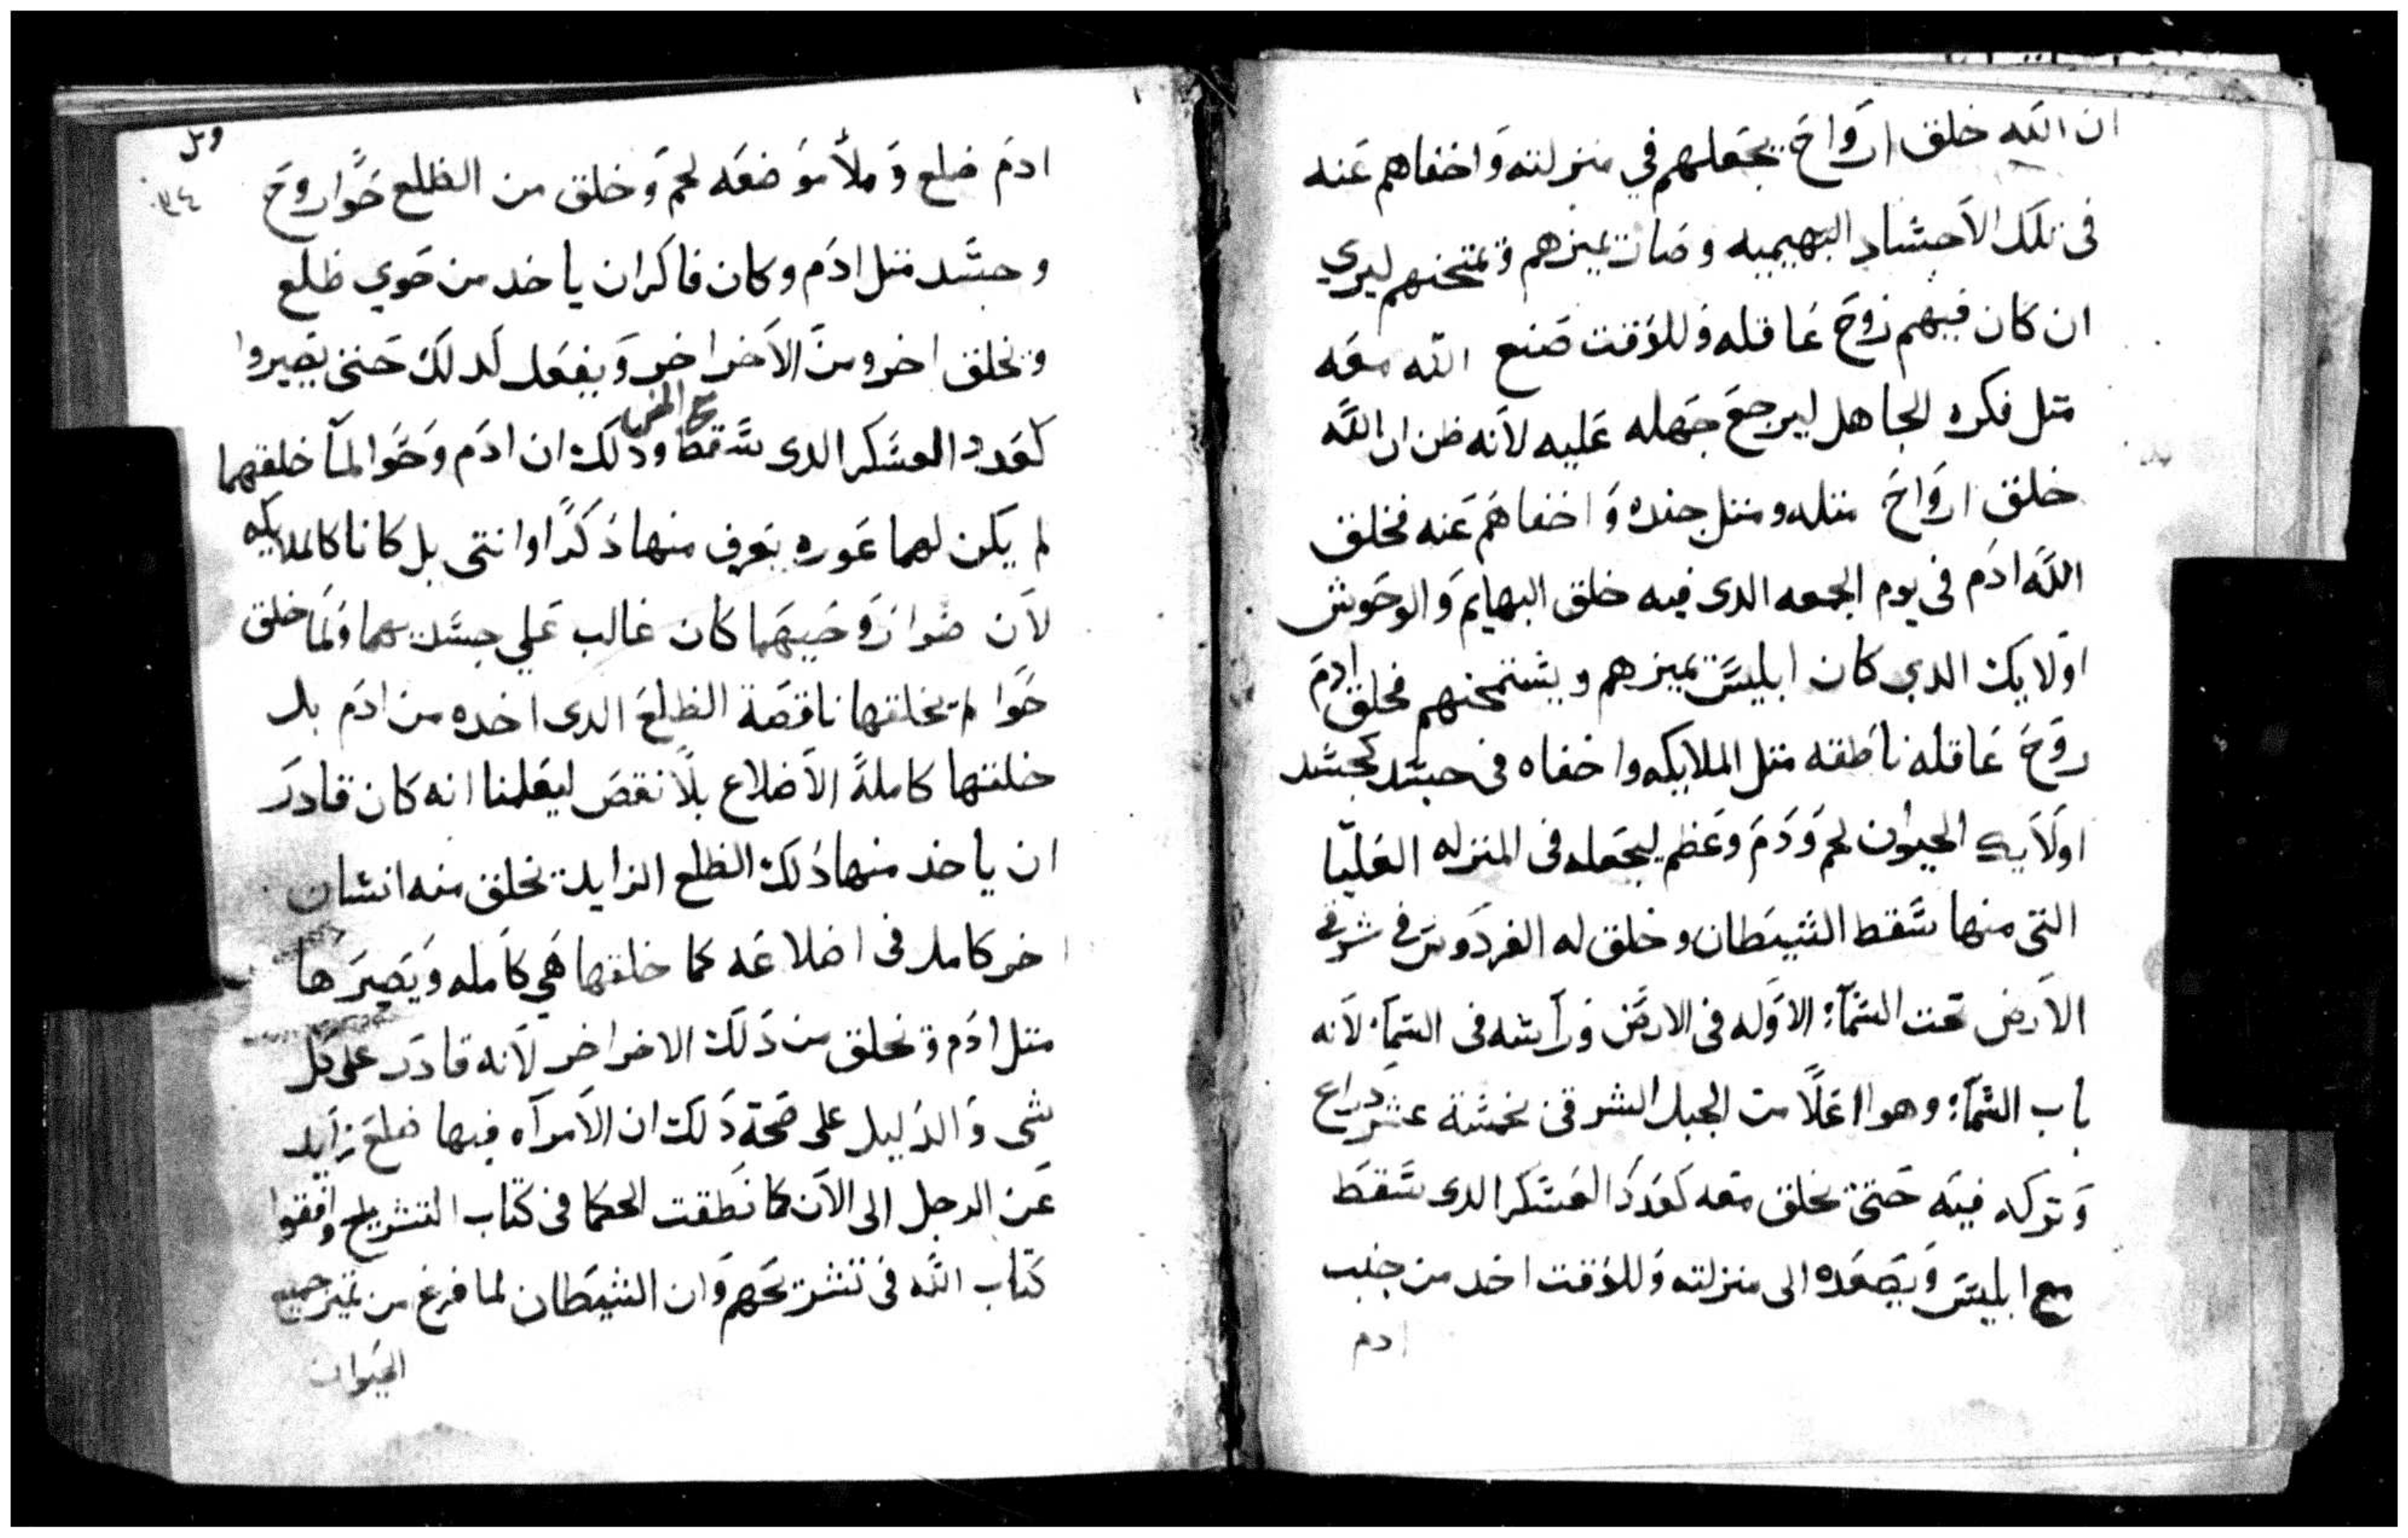 ان الله خلق ارواح يجعلهم في منزلته واخفاهم عنه
في تلك الاجساد البهيميه وصار يميزهم ويمتحنهم ليري
ان كان فيهم روح عاقله وللوقت صنع الله معه
متل فكره الجاهل ليرجع جهله عليه لانه ظن ان الله
خلق ارواح متله ومتل جنده واخفاهم عنه فخلق
الله ادم في يوم الجمعه الدي فيه خلق البهايم والوحوش
اولايك الدي كان ابليس يميزهم ويستمحنهم فخلق ادم
روح عاقله ناطقه متل الملايكه واخفاه في جسد كجسد
اولايك الحيوان لحم ودم وعظم ليجعله في المنزله العليا
التي منها سقط الشيطان وخلق له الفردوس في شرقي
الارض تحت السمآء الاوله في الارض وراسه في السمآء لانه
باب السمآء وهو اعلا من الجبل الشرقي بخمسة عشر دراع
وتركه فيه حتى يخلق معه كعدد العسكر الدي سقط
مع ابليس ويصعده الى منزلته وللوقت اخد من جنب
ادم
٣٤
ادم ضلع وملأ موضعه لحم وخلق من الظلع حوا روح
وجسد متل ادم وكان فاكر ان ياخد من حوي ظلع
ويخلق اخر ومن الاخر اخر ويفعل كدلك حتى يصيروا
كعدد العسكر الدي سقط ودلك ان ادم وحوا لمآ خلقهما
لم يكن لهما عوره يعرف منها دكرًا او انتى بل كانا كالملايكه
لان ضوا روحيهما كان غالب علي جسديهما ولما خلق
حوا لم يخلقها ناقصة الظلع الدي اخده من ادم بل
خلقها كاملة الاضلاع بلا نقص ليعلمنا انه كان قادر
ان ياخد منها دلك الظلع الزايد يخلق منه انسان
اخر كامل في اضلاعه كما خلقها هي كامله ويصيرها
متل ادم ويخلق من دلك الاخر اخر لانه قادر على كل
شي والدليل على صحة دلك ان الامرآه فيها ضلع زايد
عن الرجل الى الان كما نطقت الحكما في كتاب التشريح وافقوا
كتاب الله في تشريحهم وان الشيطان لما فرغ من تميز جميع
الحيوان